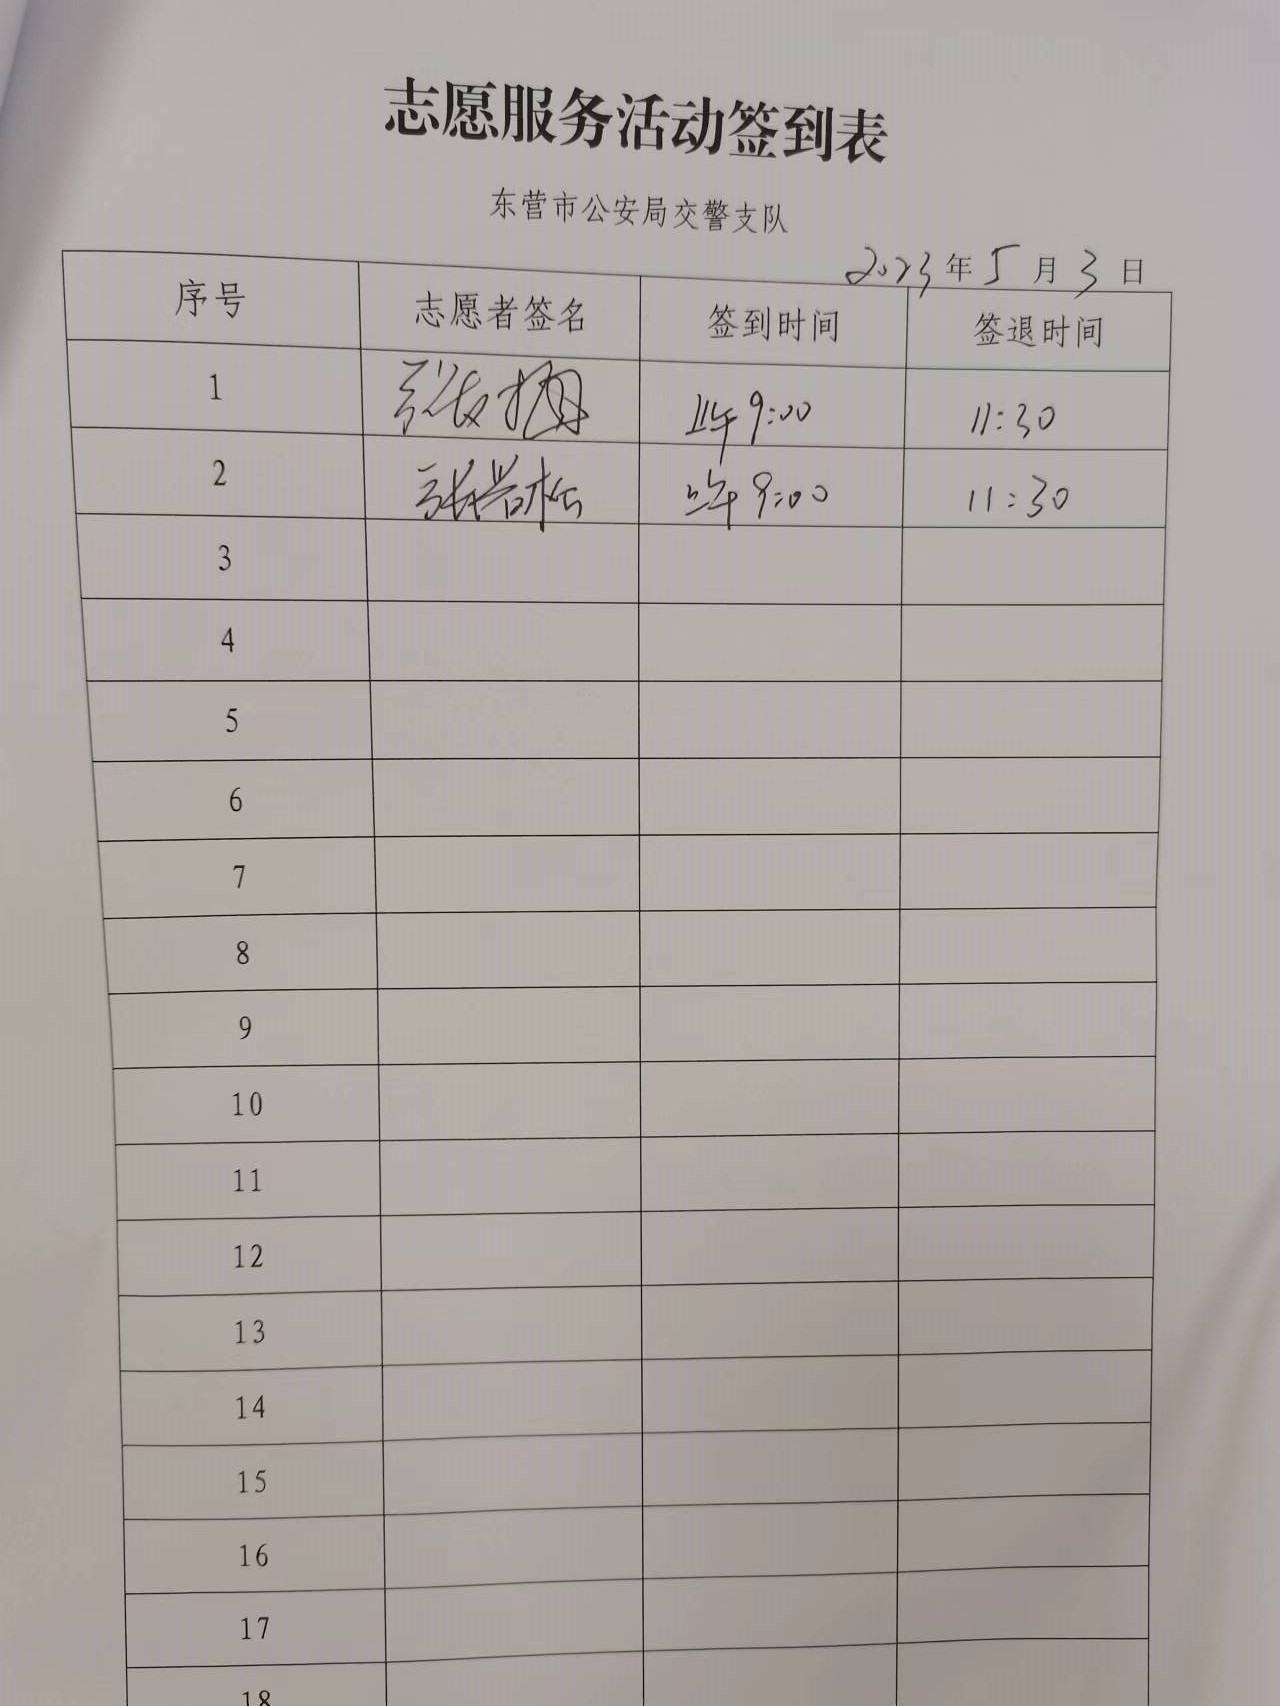 志愿服务活动签到表
东营市公安局交警支队
2023年5月3日
序号 志愿者签名 签到时间 签退时间
1 张 上午9:00 11:30
2 张岩松 上午9:00 11:30
3
4
5
6
7
8
9
10
11
12
13
14
15
16
17
18